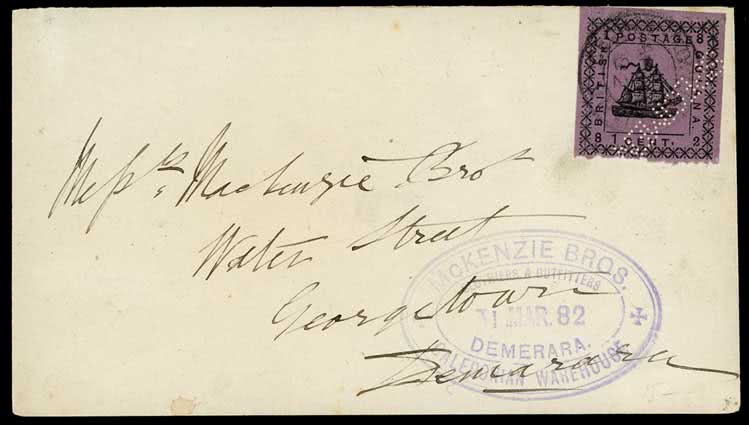 1 POSTAGE 8
BRITISH
GUIANA
8 1 CENT. 2
Messrs. Mackenzie Bros
Water Street
Georgetown
Demerara
McKENZIE BROS.
& OUTFITTERS
11 MAR. 82
DEMERARA.
CALEDONIAN WAREHOUSE